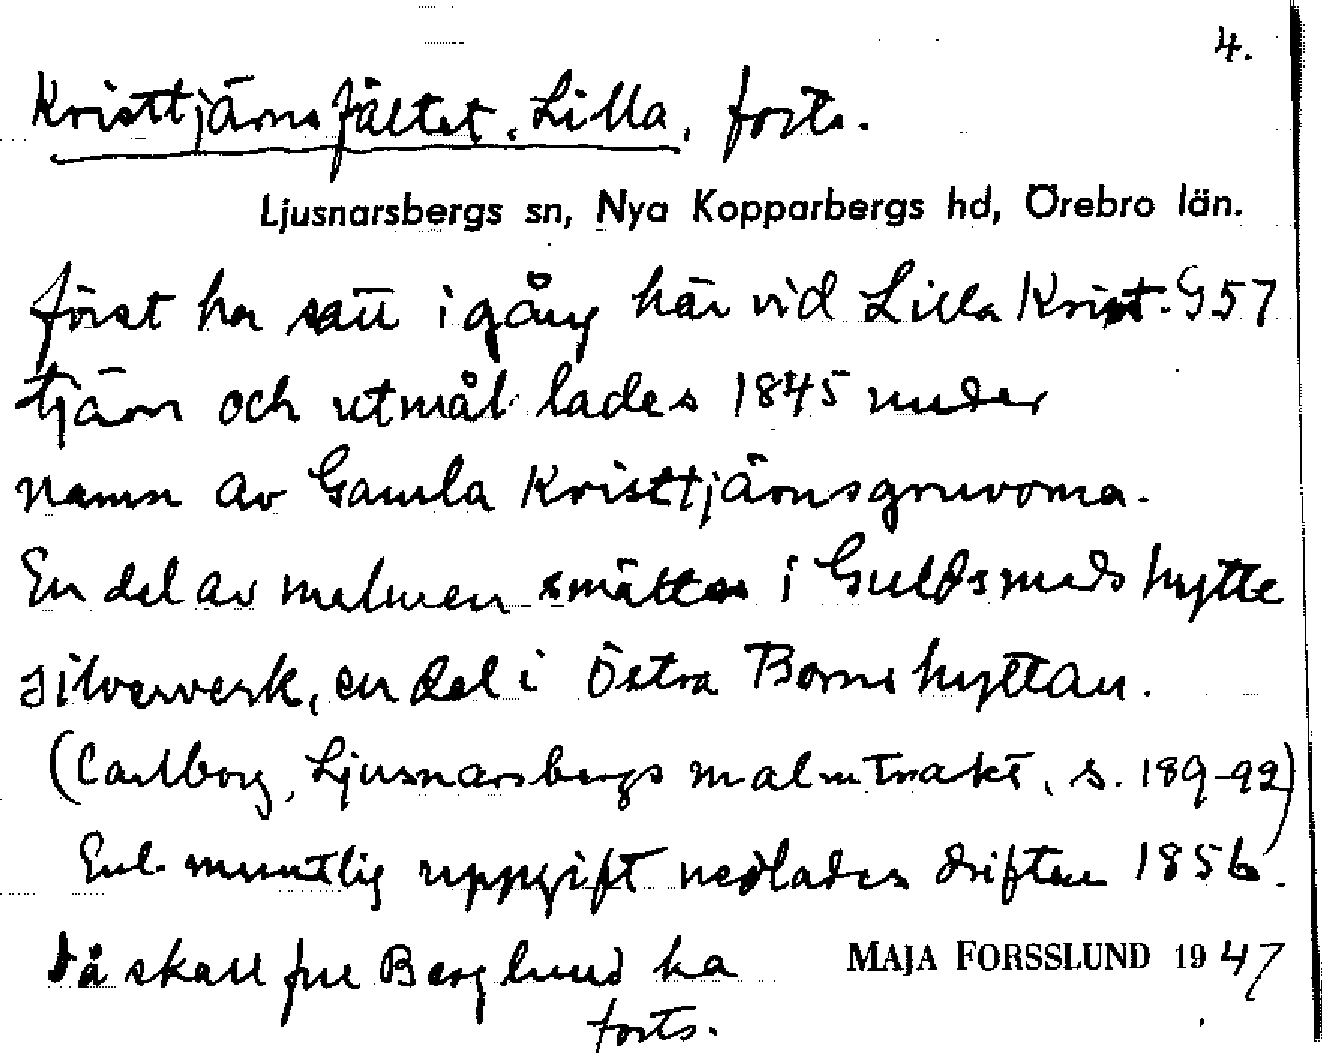 4.
Kristtjärnsfältet, Lilla, forts.
Ljusnarsbergs sn, Nya Kopparbergs hd, Örebro län.
först ha satt igång här vid Lilla Krist- G57
tjärn och utmål lades 1845 under
namn av Gamla Kristtjärnsgruvorna.
En del av malmen smältes i Guldsmedshytte
silververk, en del i Östra Bornshyttan.
(Carlborg, Ljusnarsbergs malmtrakt, s. 189-92)
Enl. muntlig uppgift nedlades driften 1856.
Då skall fru Berglund ha
MAJA FORSSLUND 1947
forts.